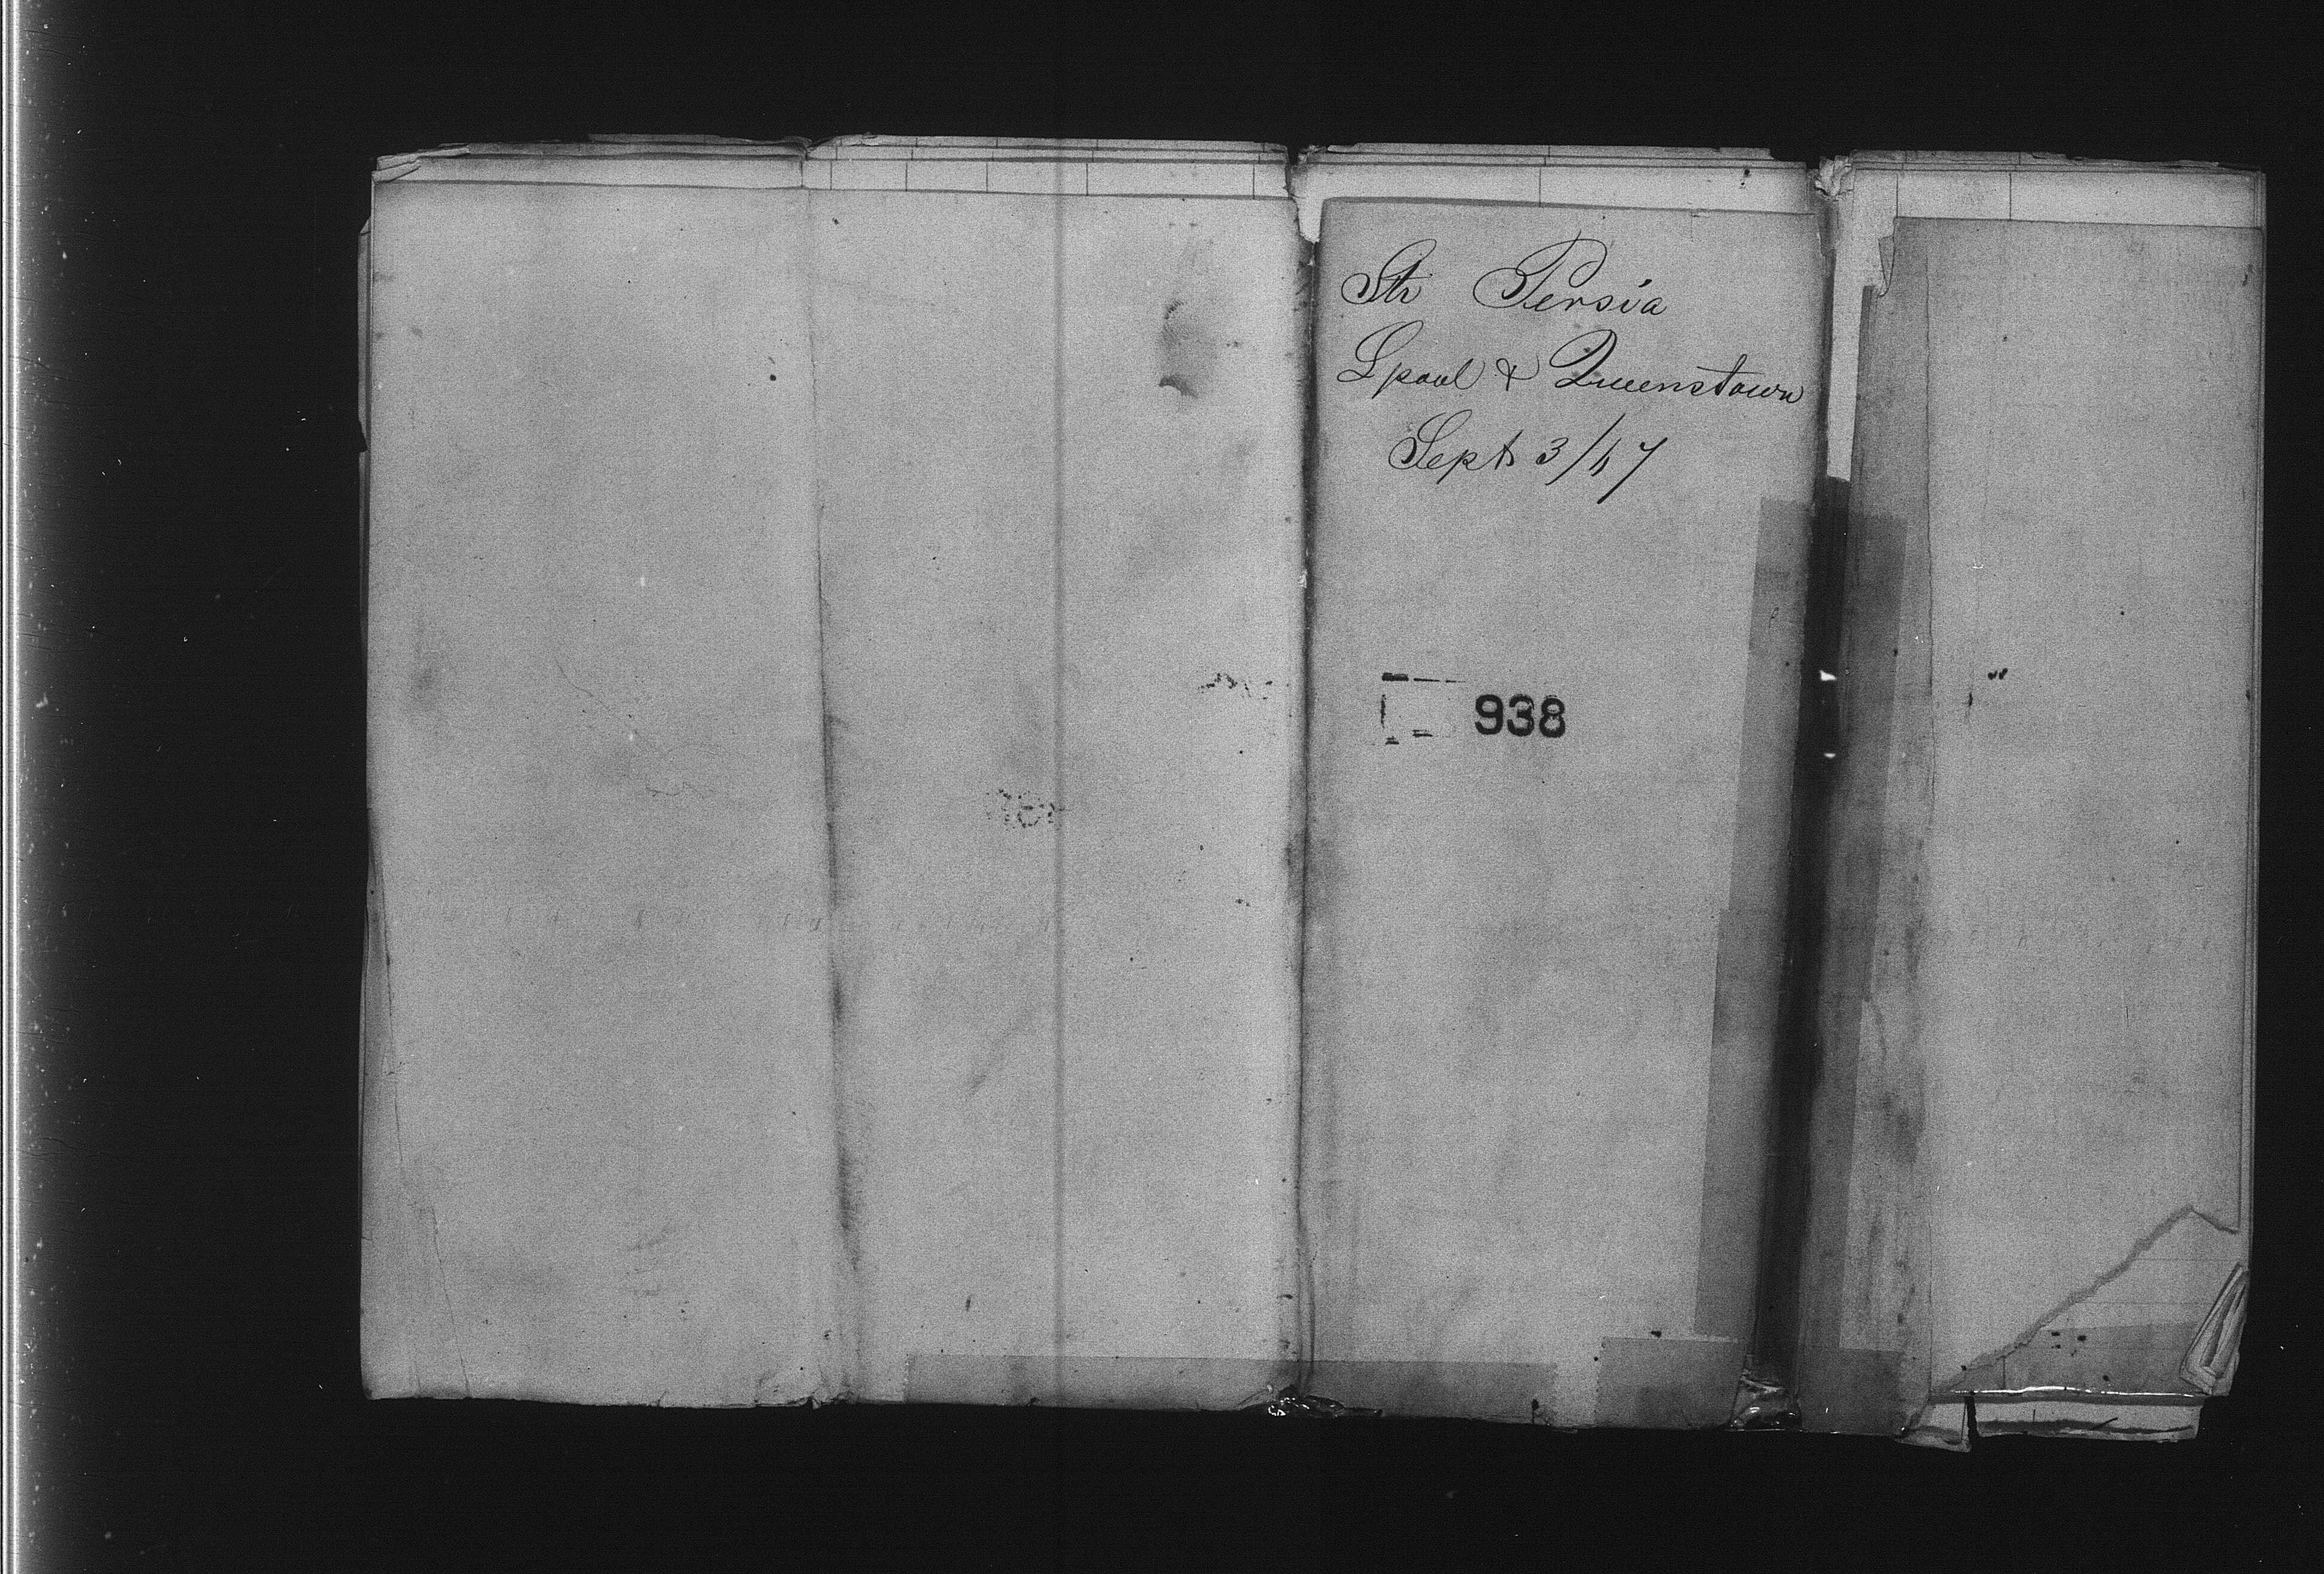 Str Persia
Lpool & Queenstown
Sept 3/67
938